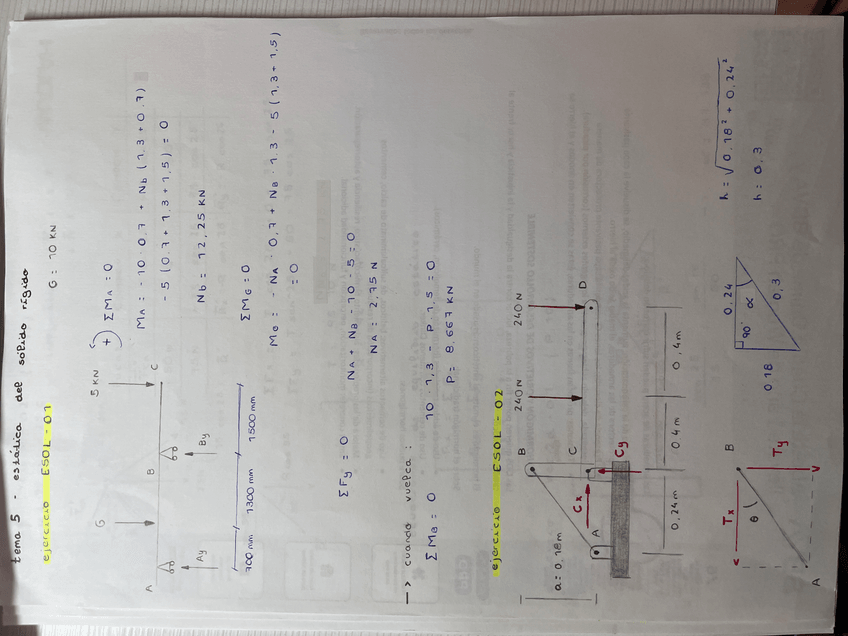 tema 5 - estática del sólido rígido
ejercicio ESOL-01
G = 10 KN
5 KN
G
A
B
C
Ay
By
700 mm
1300 mm
1500 mm
+) ΣMA = 0
MA = -10 · 0,7 + Nb (1,3 + 0,7)
-5 (0,7 + 1,3 + 1,5) = 0
Nb = 12,25 KN
ΣMG = 0
MG = - NA · 0,7 + NB · 1,3 - 5 (1,3 + 1,5)
= 0
ΣFy = 0
NA + NB - 10 - 5 = 0
NA = 2,75 N
→ cuando vuelca :
ΣMB = 0
10 · 1,3 - P · 1,5 = 0
P = 8,667 KN
ejercicio ESOL-02
240 N
240 N
B
A
C
D
Cx
Cy
a = 0,18m
0,24m
0,4m
0,4m
Tx
B
θ
Ty
A
0.24
90°
α
0.18
0,3
h = √0.18² + 0,24²
h = 0,3